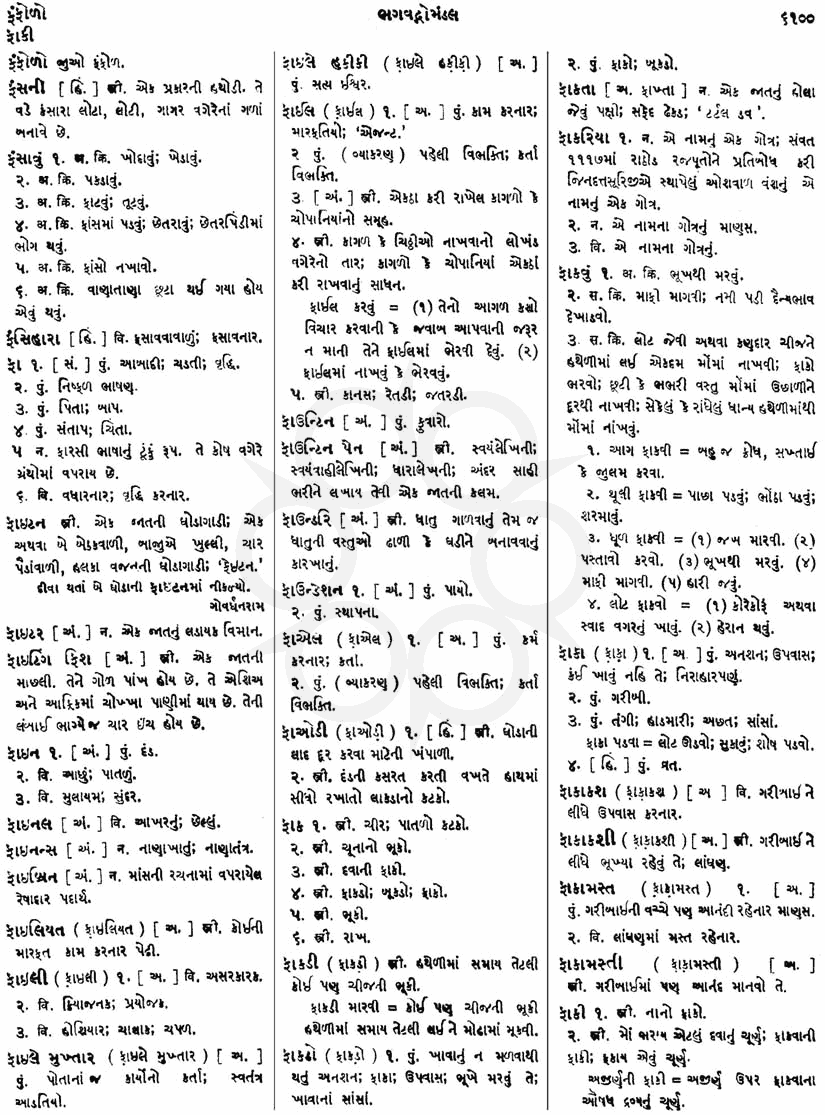 ફંફોળો
ફાકી
ભગવદ્ગોમંડલ
૬૧૦૦
ફંફોળો જુઓ ફંફોળ.
ફંસની [ હિં. ] સ્ત્રી. એક પ્રકારની હથોડી. તે
વડે કંસારા લોટા, લોટી, ગાગર વગેરેનાં ગળાં
બનાવે છે.
ફંસાવું ૧. અ. ક્રિ. ખોદાવું; ખેડાવું.
૨. અ. ક્રિ. પકડાવું.
૩. અ. ક્રિ. ફાટવું; તૂટવું.
૪. અ. ક્રિ. ફાંસમાં પડવું; છેતરાવું; છેતરપિંડીમાં
ભોગ થવું.
૫. અ. ક્રિ. ફાંસો નખાવો.
૬. અ. ક્રિ. વાણાતાણા છૂટા થઈ ગયા હોય
એવું થવું.
ફંસિહારા [ હિં. ] વિ. ફસાવવાવાળું; ફસાવનાર.
ફા ૧. [ સં. ] પું. આબાદી; ચડતી; વૃદ્ધિ.
૨. પું. નિષ્ફળ ભાષણ.
૩. પું. પિતા; બાપ.
૪. પું. સંતાપ; ચિંતા.
૫ ન. ફારસી ભાષાનું ટૂંકું રૂપ. તે કોષ વગેરે
ગ્રંથોમાં વપરાય છે.
૬. વિ. વધારનાર; વૃદ્ધિ કરનાર.
ફાઇટન સ્ત્રી. એક જાતની ઘોડાગાડી; એક
અથવા બે બેઠકવાળી, બાજુએ ખુલ્લી, ચાર
પૈડાંવાળી, હલકા વજનની ઘોડાગાડી; ‘ફેઇટન.’
દીવા થતાં બે ઘોડાની ફાઇટનમાં નીકળ્યો.
ગોવર્ધનરામ
ફાઇટર [ અં. ] ન. એક જાતનું લડાયક વિમાન.
ફાઇટિંગ ફિશ [ અં. ] સ્ત્રી. એક જાતની
માછલી. તેને ગોળ પાંખ હોય છે. તે એશિઆ
અને આફ્રિકામાં ચોખ્ખા પાણીમાં થાય છે. તેની
લંબાઈ ભાગ્યેજ ચાર ઇંચ હોય છે.
ફાઇન ૧. [ અં. ] પું. દંડ.
૨. વિ. આછું; પાતળું.
૩. વિ. મુલાયમ; સુંદર.
ફાઇનલ [ અં. ] વિ. આખરનું; છેલ્લું.
ફાઇનન્સ [ અં. ] ન. નાણાખાતું; નાણાતંત્ર.
ફાઇબ્રિન [ અં. ] ન. માંસની રચનામાં વપરાયેલ
રેષાદાર પદાર્થ.
ફાઇલિયત ( ફ઼ાઇલિયત ) [ અ. ] સ્ત્રી. કોઈની
મારફત કામ કરનાર પેઢી.
ફાઇલી ( ફ઼ાઇલી ) ૧. [ અ. ] વિ. અસરકારક.
૨. વિ. ક્રિયાજનક; પ્રયોજક.
૩. વિ. હોશિયાર; ચાલાક; ચપળ.
ફાઇલે મુખ્તાર ( ફ઼ાઇલે મુખ્તાર ) [ અ. ]
પું. પોતાનાં જ કાર્યોનો કર્તા; સ્વતંત્ર
આડતિયો.
ફાઇલે હકીકી ( ફ઼ાઇલે હક઼ીક઼ી ) [ અ. ]
પું. સત્ય ઈશ્વર.
ફાઇલ ( ફ઼ાઇલ ) ૧. [ અ. ] પું. કામ કરનાર;
મારફતિયો; ‘એજન્ટ.’
૨ પું. ( વ્યાકરણ ) પહેલી વિભક્તિ; કર્તા
વિભક્તિ.
૩. [ અં. ] સ્ત્રી. એકઠા કરી રાખેલ કાગળો કે
ચોપાનિયાંનો સમૂહ.
૪. સ્ત્રી. કાગળ કે ચિઠ્ઠીઓ નાખવાનો લોખંડ
વગેરેનો તાર; કાગળો કે ચોપાનિયાં એકઠાં
કરી રાખવાનું સાધન.
ફાઇલ કરવું = (૧) તેનો આગળ કશો
વિચાર કરવાની કે જવાબ આપવાની જરૂર
ન માની તેને ફાઇલમાં ભેરવી દેવું. (૨)
ફાઇલમાં નાખવું કે ભેરવવું.
૫. સ્ત્રી. કાનસ; રેતડી; જતરડી.
ફાઉન્ટિન [ અં. ] પું. ફુવારો.
ફાઉન્ટિન પેન [ અં. ] સ્ત્રી. સ્વયંલેખિની;
સ્વયંત્રાહીલેખિની; ધારાલેખની; અંદર સાહી
ભરીને લખાય તેવી એક જાતની કલમ.
ફાઉન્ડરિ [ અં. ] સ્ત્રી. ધાતુ ગાળવાનું તેમ જ
ધાતુની વસ્તુઓ ઢાળી કે ઘડીને બનાવવાનું
કારખાનું.
ફાઉન્ડેશન ૧. [ અં. ] પું. પાયો.
૨. પું. સ્થાપના.
ફાએલ ( ફ઼ાએલ ) ૧. [ અ. ] પું. કર્મ
કરનાર; કર્તા.
૨. પું. ( વ્યાકરણ ) પહેલી વિભક્તિ; કર્તા
વિભક્તિ.
ફાઓડી ( ફાઓડ઼ી ) ૧. [ હિં. ] સ્ત્રી. ઘોડાની
લાદ દૂર કરવા માટેની ખંપાળી.
૨. સ્ત્રી. દંડની કસરત કરતી વખતે હાથમાં
સીધો રખાતો લાકડાનો કટકો.
ફાક ૧. સ્ત્રી. ચીર; પાતળો કટકો.
૨. સ્ત્રી. ચૂનાનો ભૂકો.
૩. સ્ત્રી. દવાની ફાકી.
૪. સ્ત્રી. ફાકડો; બૂકડો; ફાકો.
૫. સ્ત્રી. ભૂકી.
૬. સ્ત્રી. રાખ.
ફાકડી ( ફાકડ઼ી ) સ્ત્રી. હથેળીમાં સમાય તેટલી
કોઈ પણ ચીજની ભૂકી.
ફાકડી મારવી = કોઈ પણ ચીજની ભૂકી
હથેળીમાં સમાય તેટલી લઈને મોઢામાં મૂકવી.
ફાકડો ( ફાકડ઼ો ) ૧. પું. ખાવાનું ન મળવાથી
થતું અનશન; ફાકા; ઉપવાસ; ભૂખે મરવું તે;
ખાવાનાં સાંસાં.
૨. પું. ફાકો; બૂકડો.
ફાકતા [ અ. ફાખ્તા ] ન. એક જાતનું હોલા
જેવું પક્ષી; સફેદ ઢેકડ; ‘ ટર્ટલ ડવ ’.
ફાકરિયા ૧. ન. એ નામનું એક ગોત્ર; સંવત
૧૧૧૭માં રાઠોડ રજપૂતોને પ્રતિબોધ કરી
જિનદત્તસૂરિજીએ સ્થાપેલું ઓશવાળ વંશનું એ
નામનું એક ગોત્ર.
૨. ન. એ નામના ગોત્રનું માણસ.
૩. વિ. એ નામના ગોત્રનું.
ફાકવું ૧. અ. ક્રિ. ભૂખથી મરવું.
૨. સ. ક્રિ. માફી માગવી; નમી પડી દૈન્યભાવ
દેખાડવો.
૩. સ. ક્રિ. લોટ જેવી અથવા કણદાર ચીજને
હથેળીમાં લઈ એકદમ મોંમાં નાખવી; ફાકો
ભરવો; છૂટી કે ભભરી વસ્તુ મોંમાં ઉછાળીને
દૂરથી નાખવી; સેકેલું કે રાંધેલું ધાન્ય હથેળીમાંથી
મોંમાં નાંખવું.
૧. આગ ફાકવી = બહુ જ ક્રોધ, સખ્તાઈ
કે જુલમ કરવા.
૨. થૂલી ફાકવી = પાછા પડવું; ભોંઠા પડવું;
શરમાવું.
૩. ધૂળ ફાકવી = (૧) જખ મારવી. (૨)
પસ્તાવો કરવો. (૩) ભૂખથી મરવું. (૪)
માફી માગવી. (૫) હારી જવું.
૪. લોટ ફાકવો = (૧) કોરેકોરું અથવા
સ્વાદ વગરનું ખાવું. (૨) હેરાન થવું.
ફાકા ( ફ઼ાક઼ા ) ૧. [ અ. ] પું. અનશન; ઉપવાસ;
કંઈ ખાવું નહિ તે; નિરાહારપણું.
૨. પું. ગરીબી.
૩. પું. તંગી; હાડમારી; અછત; સાંસાં.
ફાકા પડવા = લોટ ઊડવો; સુકાવું; શોષ પડવો.
૪. [ હિં. ] પું. વ્રત.
ફાકાકશ ( ફ઼ાક઼ાકશ ) [ અ ] વિ. ગરીબાઈને
લીધે ઉપવાસ કરનાર.
ફાકાકશી ( ફ઼ાક઼ાકશી ) [ અ. ] સ્ત્રી. ગરીબાઈને
લીધે ભૂખ્યા રહેવું તે; લાંઘણ.
ફાકામસ્ત ( ફ઼ાક઼ામસ્ત ) ૧. [ અ. ]
પું. ગરીબાઈની વચ્ચે પણ આનંદી રહેનાર માણસ.
૨. વિ. લાંઘણમાં મસ્ત રહેનાર.
ફાકામસ્તી ( ફ઼ાક઼ામસ્તી ) [ અ. ]
સ્ત્રી. ગરીબાઈમાં પણ આનંદ માનવો તે.
ફાકી ૧. સ્ત્રી. નાનો ફાકો.
૨. સ્ત્રી. મોં ભરાય એટલું દવાનું ચૂર્ણ; ફાકવાની
ફાકી; ફકાય એવું ચૂર્ણ.
અજીર્ણની ફાકી = અજીર્ણ ઉપર ફાકવાના
ઔષધ દ્રવ્યનું ચૂર્ણ.